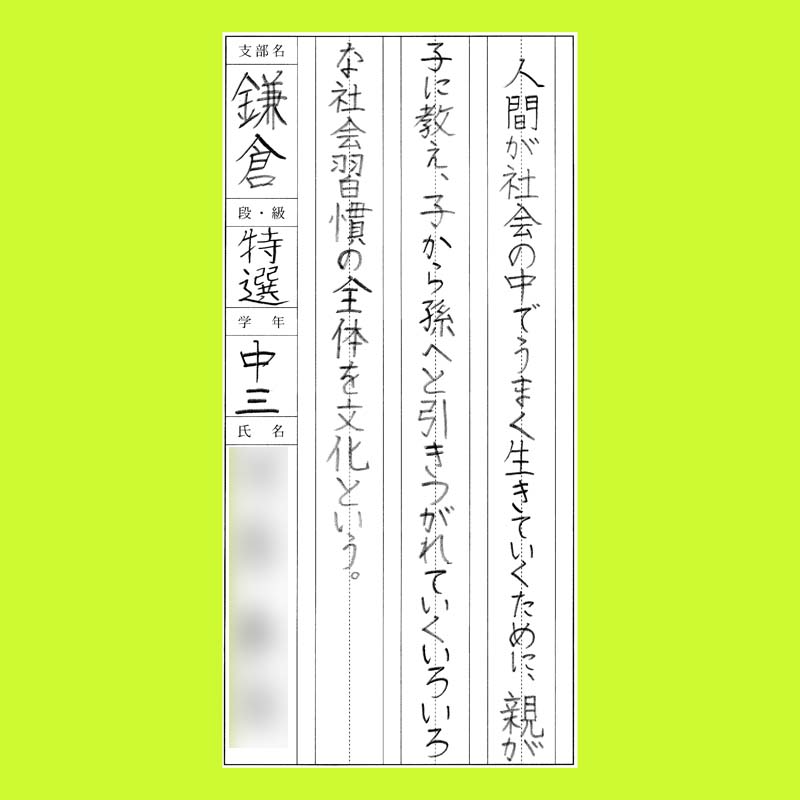 人間が社会の中でうまく生きていくために、親が
子に教え、子から孫へと引きつがれていくいろいろ
な社会習慣の全体を文化という。
支部名
鎌倉
段・級
特選
学年
中三
氏名